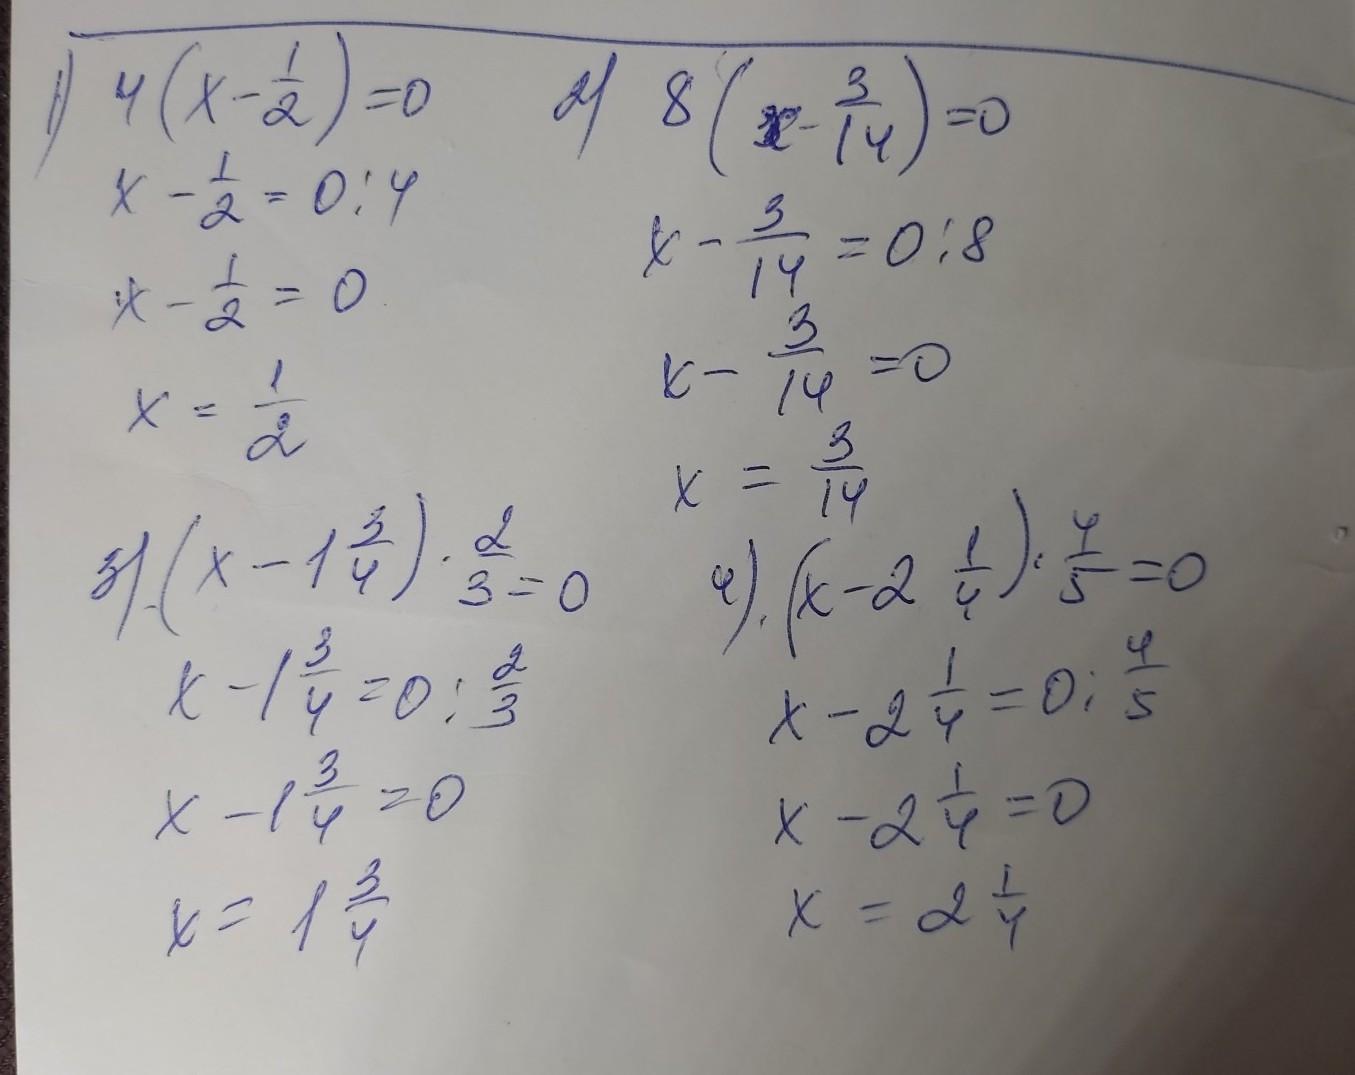 1) 4(x - 1/2) = 0
x - 1/2 = 0 : 4
x - 1/2 = 0
x = 1/2
2) 8(x - 3/14) = 0
x - 3/14 = 0 : 8
x - 3/14 = 0
x = 3/14
3) (x - 1 3/4) · 2/3 = 0
x - 1 3/4 = 0 : 2/3
x - 1 3/4 = 0
x = 1 3/4
4). (x - 2 1/4) · 4/5 = 0
x - 2 1/4 = 0 : 4/5
x - 2 1/4 = 0
x = 2 1/4